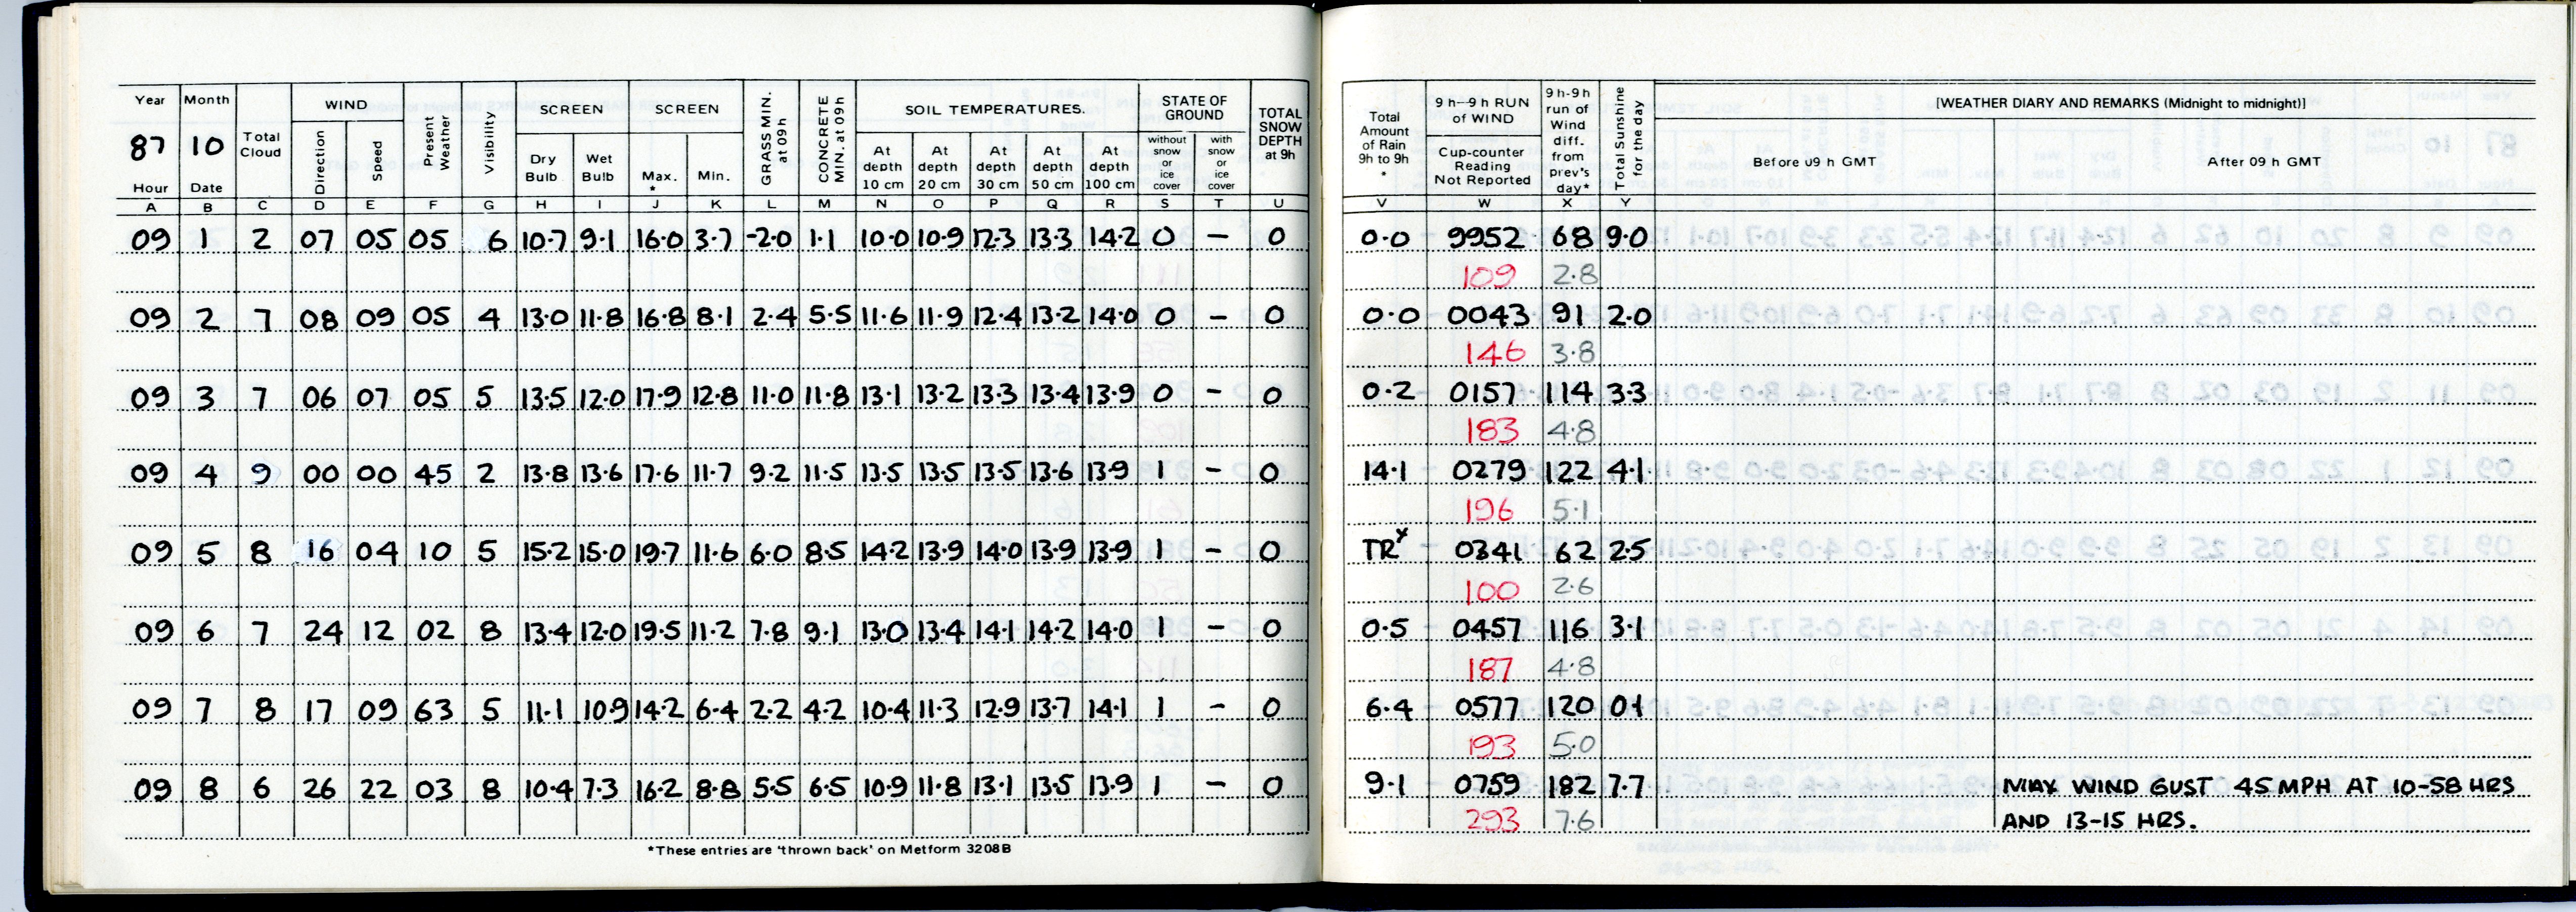 Year Month Total Cloud WIND Present Weather Visibility SCREEN SCREEN GRASS MIN. at 09h CONCRETE MIN. at 09h SOIL TEMPERATURES. STATE OF GROUND TOTAL SNOW DEPTH at 9h
87 10 Direction Speed Dry Bulb Wet Bulb Max. * Min. At depth 10 cm At depth 20 cm At depth 30 cm At depth 50 cm At depth 100 cm without snow or ice cover with snow or ice cover
Hour Date
A B C D E F G H I J K L M N O P Q R S T U
09 1 2 07 05 05 6 10.7 9.1 16.0 3.7 -2.0 1.1 10.0 10.9 12.3 13.3 14.2 0 – 0
09 2 7 08 09 05 4 13.0 11.8 16.8 8.1 2.4 5.5 11.6 11.9 12.4 13.2 14.0 0 – 0
09 3 7 06 07 05 5 13.5 12.0 17.9 12.8 11.0 11.8 13.1 13.2 13.3 13.4 13.9 0 – 0
09 4 9 00 00 45 2 13.8 13.6 17.6 11.7 9.2 11.5 13.5 13.5 13.5 13.6 13.9 1 – 0
09 5 8 16 04 10 5 15.2 15.0 19.7 11.6 6.0 8.5 14.2 13.9 14.0 13.9 13.9 1 – 0
09 6 7 24 12 02 8 13.4 12.0 19.5 11.2 7.8 9.1 13.0 13.4 14.1 14.2 14.0 1 – 0
09 7 8 17 09 63 5 11.1 10.9 14.2 6.4 2.2 4.2 10.4 11.3 12.9 13.7 14.1 1 – 0
09 8 6 26 22 03 8 10.4 7.3 16.2 8.8 5.5 6.5 10.9 11.8 13.1 13.5 13.9 1 – 0
*These entries are 'thrown back' on Metform 3208B
Total Amount of Rain 9h to 9h * 9 h–9 h RUN of WIND Cup-counter Reading Not Reported 9 h-9h run of Wind diff. from prev's day* Total Sunshine for the day [WEATHER DIARY AND REMARKS (Midnight to midnight)]
Before 09 h GMT After 09 h GMT
V W X Y
0.0 9952 68 9.0
109 2.8
0.0 0043 91 2.0
146 3.8
0.2 0157 114 3.3
183 4.8
14.1 0279 122 4.1
196 5.1
TRx 0341 62 2.5
100 2.6
0.5 0457 116 3.1
187 4.8
6.4 0577 120 0.1
193 5.0
9.1 0759 182 7.7 MAX WIND GUST 45 MPH AT 10-58 HRS
293 7.6 AND 13-15 HRS.